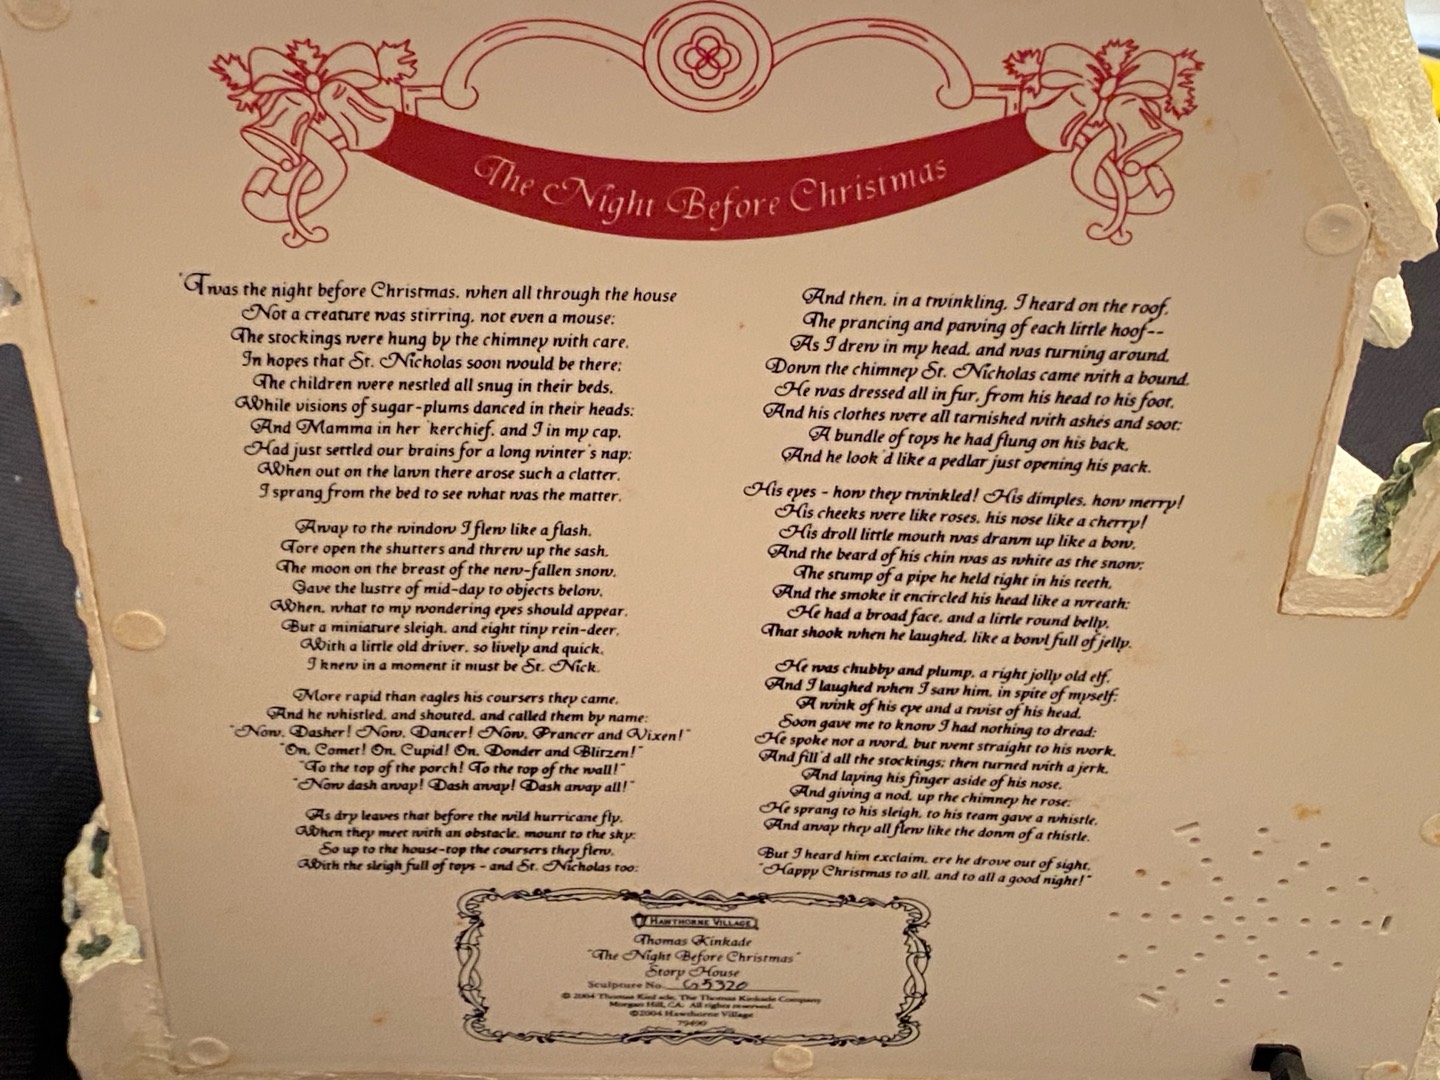 The Night Before Christmas
'Twas the night before Christmas, when all through the house
Not a creature was stirring, not even a mouse;
The stockings were hung by the chimney with care,
In hopes that St. Nicholas soon would be there;
The children were nestled all snug in their beds,
While visions of sugar-plums danced in their heads;
And Mamma in her 'kerchief, and I in my cap,
Had just settled our brains for a long winter's nap;
When out on the lawn there arose such a clatter,
I sprang from the bed to see what was the matter.
Away to the window I flew like a flash,
Tore open the shutters and threw up the sash.
The moon on the breast of the new-fallen snow,
Gave the lustre of mid-day to objects below,
When, what to my wondering eyes should appear,
But a miniature sleigh, and eight tiny rein-deer,
With a little old driver, so lively and quick,
I knew in a moment it must be St. Nick.
More rapid than eagles his coursers they came,
And he whistled, and shouted, and called them by name:
"Now, Dasher! Now, Dancer! Now, Prancer and Vixen!"
"On, Comet! On, Cupid! On, Donder and Blitzen!"
"To the top of the porch! To the top of the wall!"
"Now dash away! Dash away! Dash away all!"
As dry leaves that before the wild hurricane fly,
When they meet with an obstacle, mount to the sky;
So up to the house-top the coursers they flew,
With the sleigh full of toys - and St. Nicholas too:
And then, in a twinkling, I heard on the roof,
The prancing and pawing of each little hoof--
As I drew in my head, and was turning around,
Down the chimney St. Nicholas came with a bound.
He was dressed all in fur, from his head to his foot,
And his clothes were all tarnished with ashes and soot;
A bundle of toys he had flung on his back,
And he look'd like a pedlar just opening his pack.
His eyes - how they twinkled! His dimples, how merry!
His cheeks were like roses, his nose like a cherry!
His droll little mouth was drawn up like a bow,
And the beard of his chin was as white as the snow;
The stump of a pipe he held tight in his teeth,
And the smoke it encircled his head like a wreath;
He had a broad face, and a little round belly,
That shook when he laughed, like a bowl full of jelly.
He was chubby and plump, a right jolly old elf,
And I laughed when I saw him, in spite of myself;
A wink of his eye and a twist of his head,
Soon gave me to know I had nothing to dread;
He spoke not a word, but went straight to his work,
And fill'd all the stockings; then turned with a jerk,
And laying his finger aside of his nose,
And giving a nod, up the chimney he rose;
He sprang to his sleigh, to his team gave a whistle,
And away they all flew like the down of a thistle.
But I heard him exclaim, ere he drove out of sight,
"Happy Christmas to all, and to all a good night!"
HAWTHORNE VILLAGE
Thomas Kinkade
"The Night Before Christmas"
Story House
Sculpture No. G5320
© 2004 Thomas Kinkade, The Thomas Kinkade Company
Morgan Hill, CA. All rights reserved.
©2004 Hawthorne Village
79490